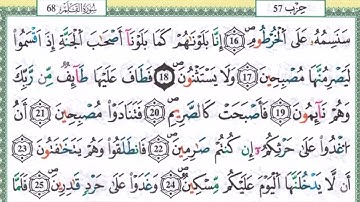 حِزْب 57 سُورَةُ القَلَم 68
سَنَسِمُهُۥ عَلَى ٱلْخُرْطُومِ ۝16 إِنَّا بَلَوْنَٰهُمْ كَمَا بَلَوْنَآ أَصْحَٰبَ ٱلْجَنَّةِ إِذْ أَقْسَمُوا۟
لَيَصْرِمُنَّهَا مُصْبِحِينَ ۝17 وَلَا يَسْتَثْنُونَ ۝18 فَطَافَ عَلَيْهَا طَآئِفٌ مِّن رَّبِّكَ
وَهُمْ نَآئِمُونَ ۝19 فَأَصْبَحَتْ كَٱلصَّرِيمِ ۝20 فَتَنَادَوْا۟ مُصْبِحِينَ ۝21 أَنِ
ٱغْدُوا۟ عَلَىٰ حَرْثِكُمْ إِن كُنتُمْ صَٰرِمِينَ ۝22 فَٱنطَلَقُوا۟ وَهُمْ يَتَخَٰفَتُونَ ۝23
أَن لَّا يَدْخُلَنَّهَا ٱلْيَوْمَ عَلَيْكُم مِّسْكِينٌ ۝24 وَغَدَوْا۟ عَلَىٰ حَرْدٍ قَٰدِرِينَ ۝25 فَلَمَّا